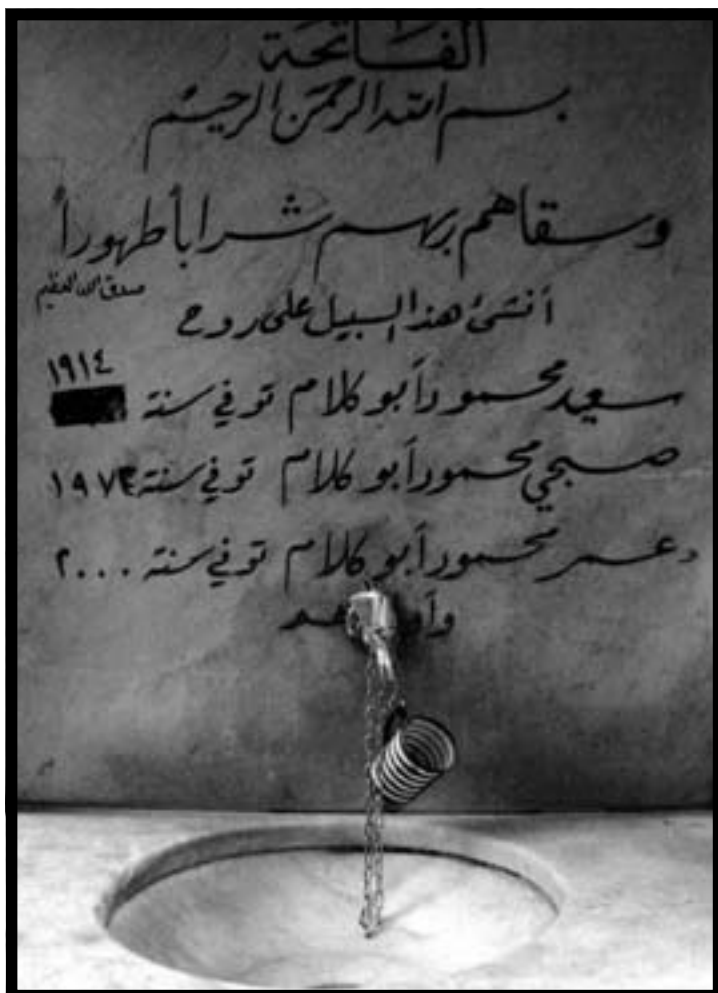 الفاتحة
بسم الله الرحمن الرحيم
وسقاهم ربهم شراباً طهوراً
صدق الله العظيم
أنشئ هذا السبيل على روح
سعيد محمود أبو كلام توفي سنة ١٩١٤
صبحي محمود أبو كلام توفي سنة ١٩٧٣
د. عمر محمود أبو كلام توفي سنة ٢٠٠٠